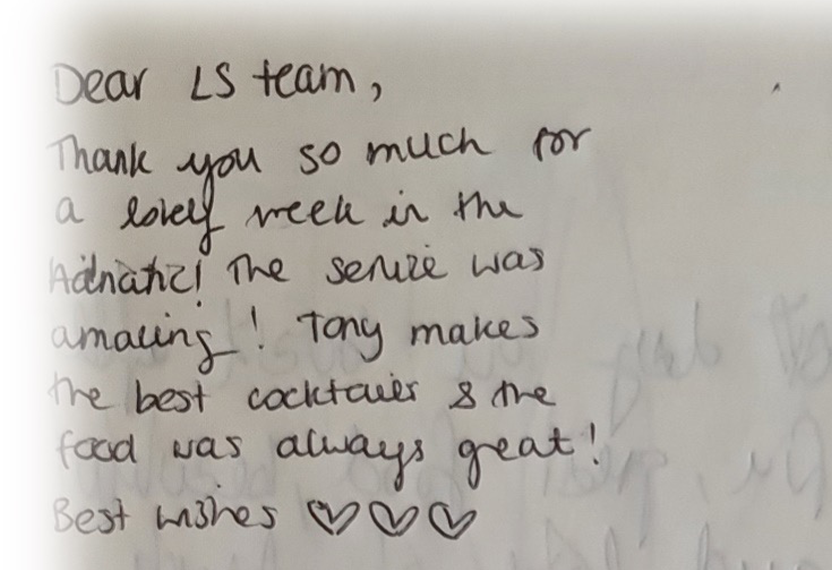 Dear LS team,
Thank you so much for
a lovely week in the
Adriatic! The service was
amazing! Tony makes
the best cocktails & the
food was always great!
Best wishes ♡♡♡